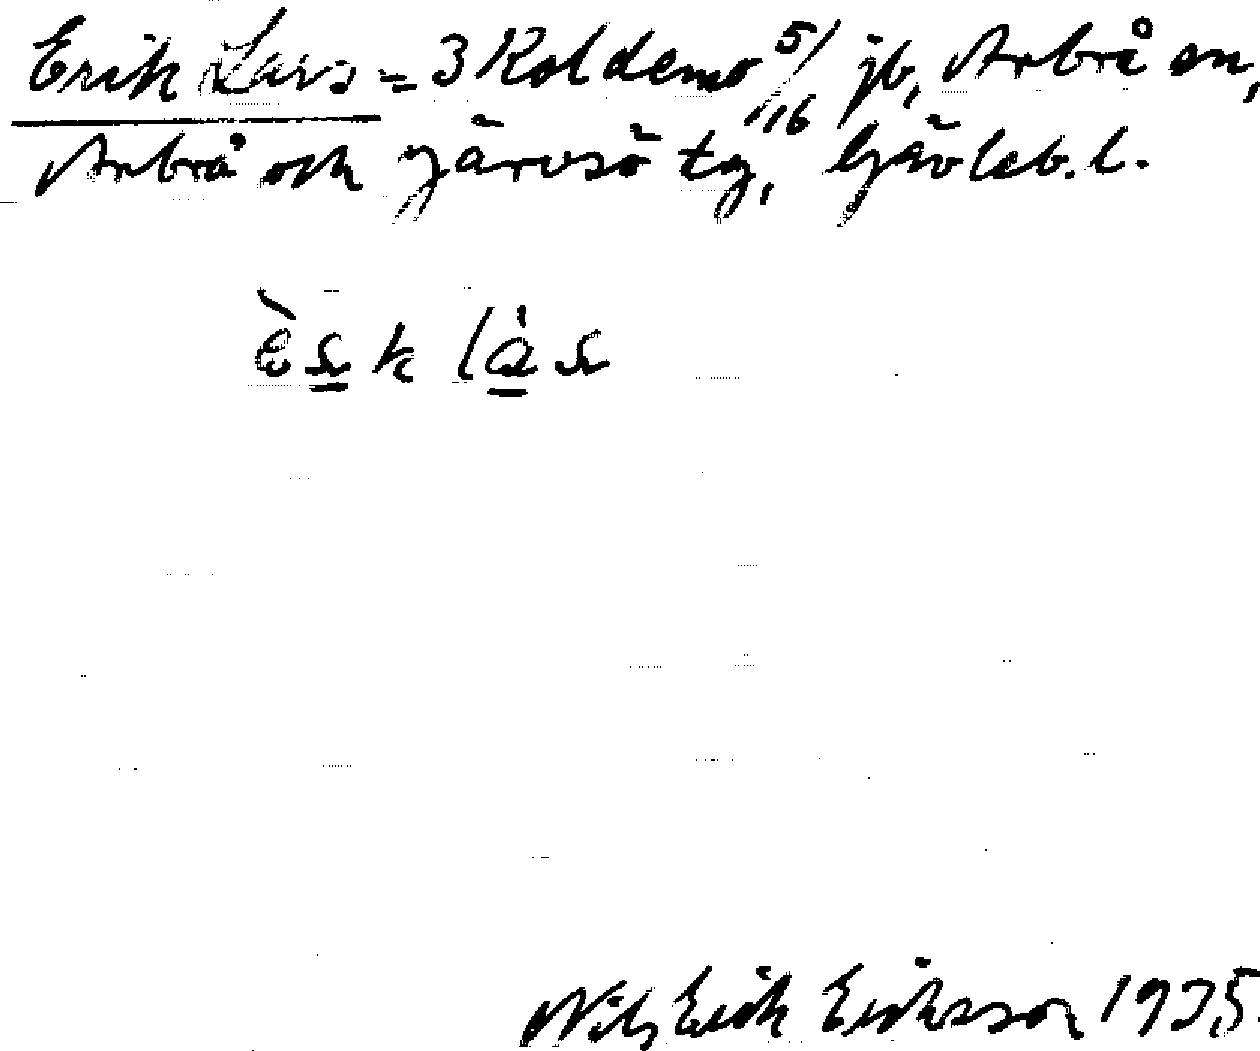 Erik Lars = 3 Koldemo 5/16 jb, Arbrå sn,
Arbrå och Järvsö tg, Gävleb. l.
Nils Erik Eriksson 1935.